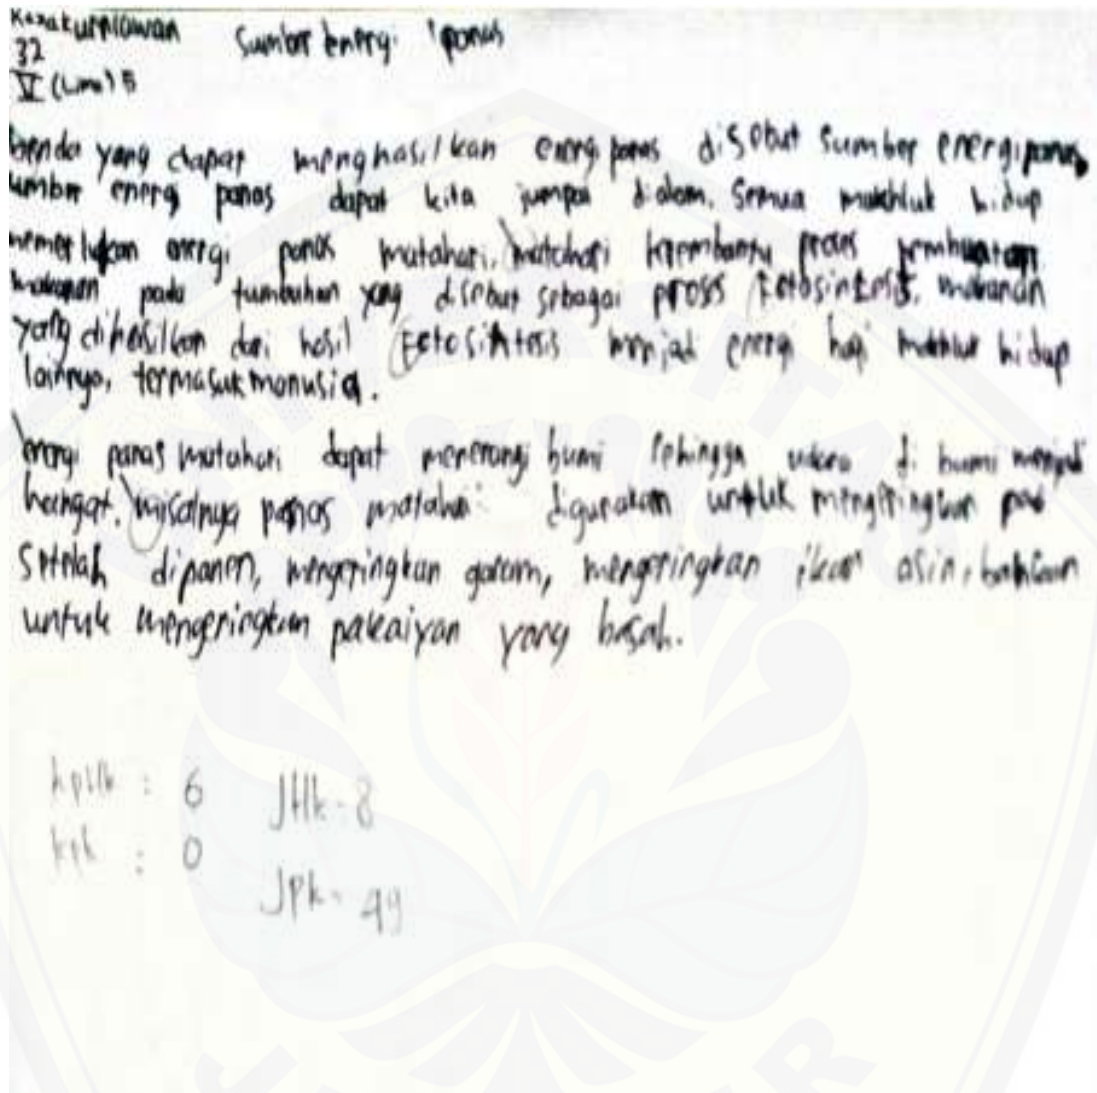 Kanakurniawan Sumber energi panas
32
V (Lima) B
benda yang dapat menghasilkan energi panas disebut sumber energi panas
sumber energi panas dapat kita jumpai dialam. Semua makhluk hidup
memerlukan energi panas matahari. matahari membantu proses pembuatan
makanan pada tumbuhan yang disebut sebagai proses Fotosintesis. makanan
yang dihasilkan dari hasil Fotosintesis menjadi energi bagi makhluk hidup
lainnya, termasuk manusia.
energi panas matahari dapat menerangi bumi sehingga udara di bumi menjadi
hangat. misalnya panas matahari digunakan untuk mengeringkan padi
Setelah dipanen, mengeringkan garam, mengeringkan ikan asin, bahkan
untuk mengeringkan pakaiyan yang basah.
: 6 Jtlk - 8
kpk : 0
Jpk - 49